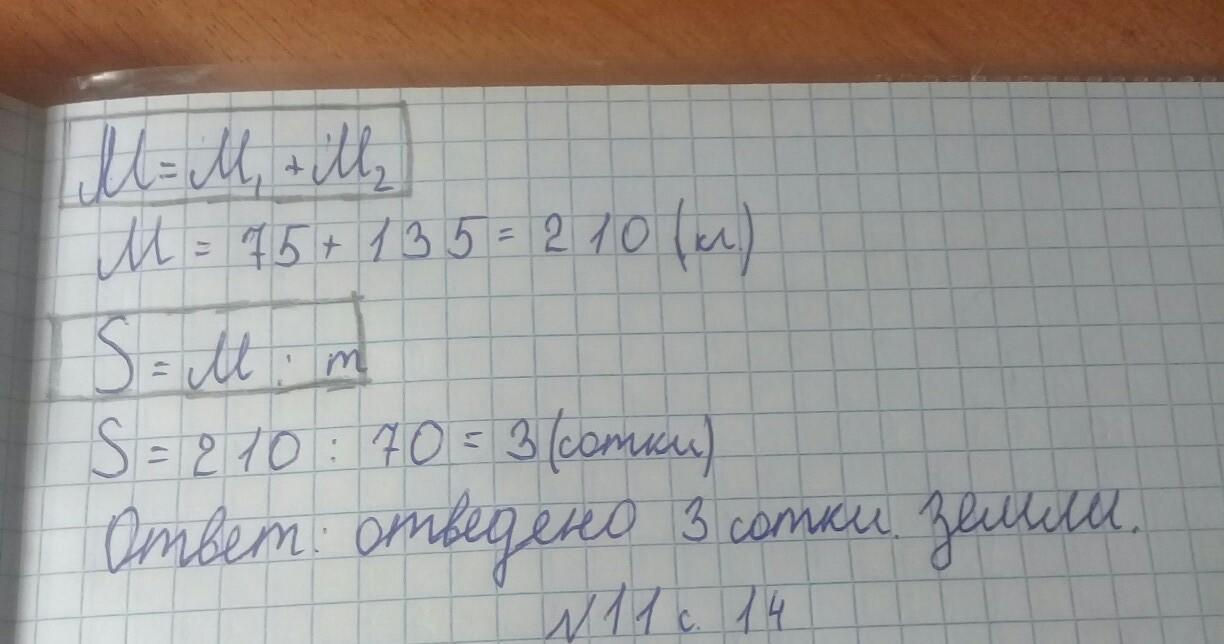 M = M₁ + M₂
M = 75 + 135 = 210 (кг.)
S = M : m
S = 210 : 70 = 3 (сотки)
Ответ: отведено 3 сотки. земли.
N 11 с. 14